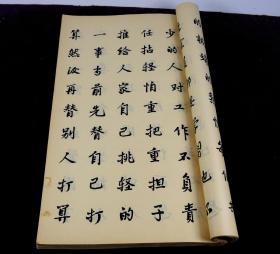 少的人对工作不負責
任拈轻怕重把重担子
推给人家自己挑轻的
一事当前先替自己打
算然後再替别人打算